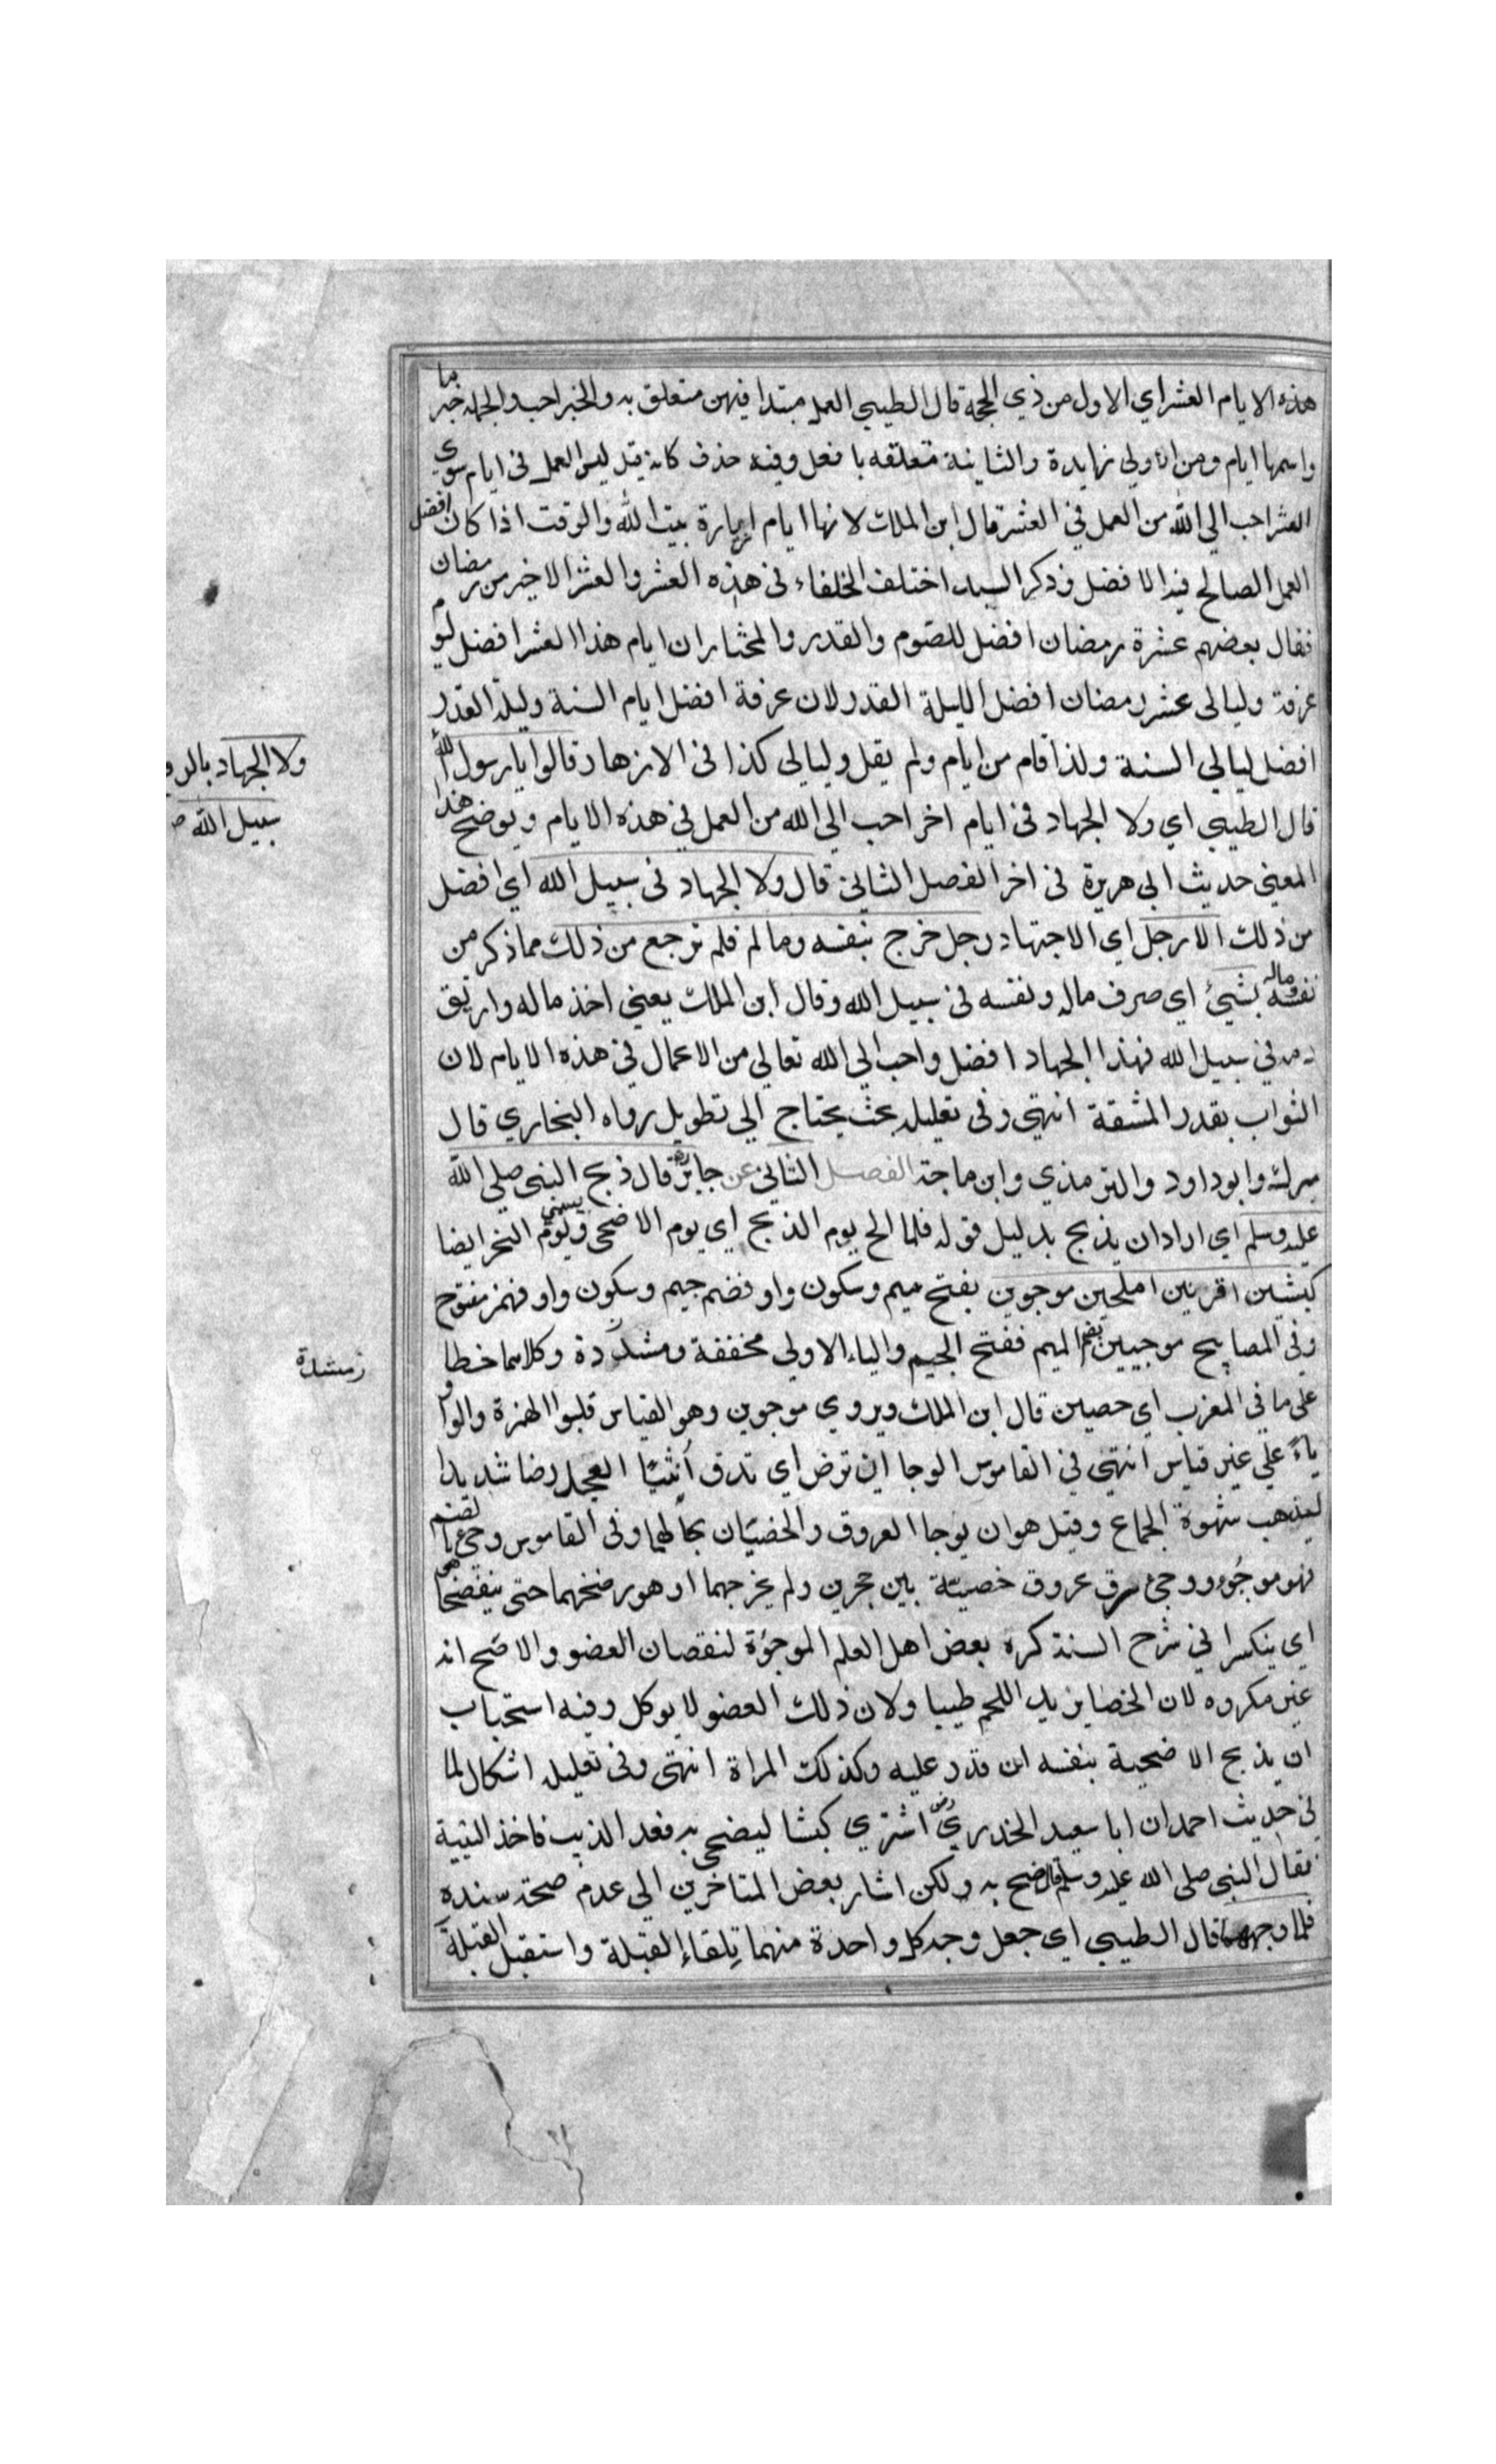 هذه الايام العشر اي الاول من ذي الحجة قال الطيبي العمل مبتدا فيهن متعلق به والخبر احب والجملة خبر ما
واسمها ايام ومن الاولي زايدة والثانية متعلقه بافعل وفيه حذف كانه قيل ليس العمل في ايام سوي
العشر احب الي الله من العمل في العشر قال ابن الملك لانها ايام زيارة بيت الله والوقت اذا كان افضل
العمل الصالح فيه الافضل وذكر السيد اختلف الخلفاء في هذه العشر والعشر الاخير من رمضان
فقال بعضهم عشرة رمضان افضل للصوم والقدر والمختار ان ايام هذا العشر افضل ليوم
عرفة وليالى عشر رمضان افضل لليلة القدر لان عرفة افضل ايام السنة وليلة القدر
افضل ليالي السنة ولذا قام من ايام ولم يقل وليالى كذا فى الازهار قالوا يا رسول الله
قال الطيبي اي ولا الجهاد فى ايام اخر احب الي الله من العمل في هذه الايام ويوضح هذا
المعني حديث ابي هريرة فى اخر الفصل الثاني قال ولا الجهاد فى سبيل الله اي افضل
من ذلك الا رجل اي الا جهاد رجل خرج بنفسه وماله فلم يرجع من ذلك مما ذكر من
نفسه وماله بشيئ اي صرف ماله ونفسه فى سبيل الله وقال ابن الملك يعني اخذ ماله واريق
دمه في سبيل الله فهذا الجهاد افضل واحب الي الله تعالي من الاعمال في هذه الايام لان
الثواب بقدر المشقة انتهى وفى تعليله بحث يحتاج الي تطويل رواه البخاري قال
ميرك وابوداود والترمذي وابن ماجة الفصل الثاني عن جابر قال ذبح النبى صلي الله
عليه وسلم اي اراد ان يذبح بدليل قوله فلما الخ يوم الذبح اي يوم الاضحى ويسمى يوم النحر ايضا
كبشين اقرنين املحين موجوين بفتح ميم وسكون واو فضم جيم وسكون واو فهمز مفتوح
وفى المصابيح موجيين بضم الميم ففتح الجيم والياء الاولي مخففة ومشددة وكلاهما خطا
على ما في المغرب اي خصيين قال ابن الملك ويروي موجوين وهو القياس قلبوا الهمزة والواو
ياءً علي غير قياس انتهى في القاموس الوجا ان ترض اي تدق انثيا العجل رضا شديدا
ليذهب شهوة الجماع وقيل هو ان يوجا العروق والخصيتان بحالهما وفى القاموس وجئ بالضم
فهو موجُوء ووجئ دق عروق خصيتة بين حجرين ولم يخرجهما او هو رضخهما حتى ينفضخا هي
اي ينكسرا في شرح السنة كره بعض اهل العلم الموجوٴة لنقصان العضو والاصح انه
غير مكروه لان الخصا يزيد اللحم طيبا ولان ذلك العضو لا يوكل وفيه استحباب
ان يذبح الاضحية بنفسه ان قدر عليه وكذلك المراة انتهى وفى تعليله اشكال لما
في حديث احمد ان ابا سعيد الخدري اشتري كبشا ليضحى به فعد الذيب فاخذ الية
فقال النبى صلى الله عليه وسلم قال ضح به ولكن اشار بعض المتاخرين الى عدم صحة سنده
فلما وجههما قال الطيبي اي جعل وجه كل واحدة منهما تلقاء القبلة واستقبل القبلة
ولا الجهاد بالرفع
سبيل الله
مشددة